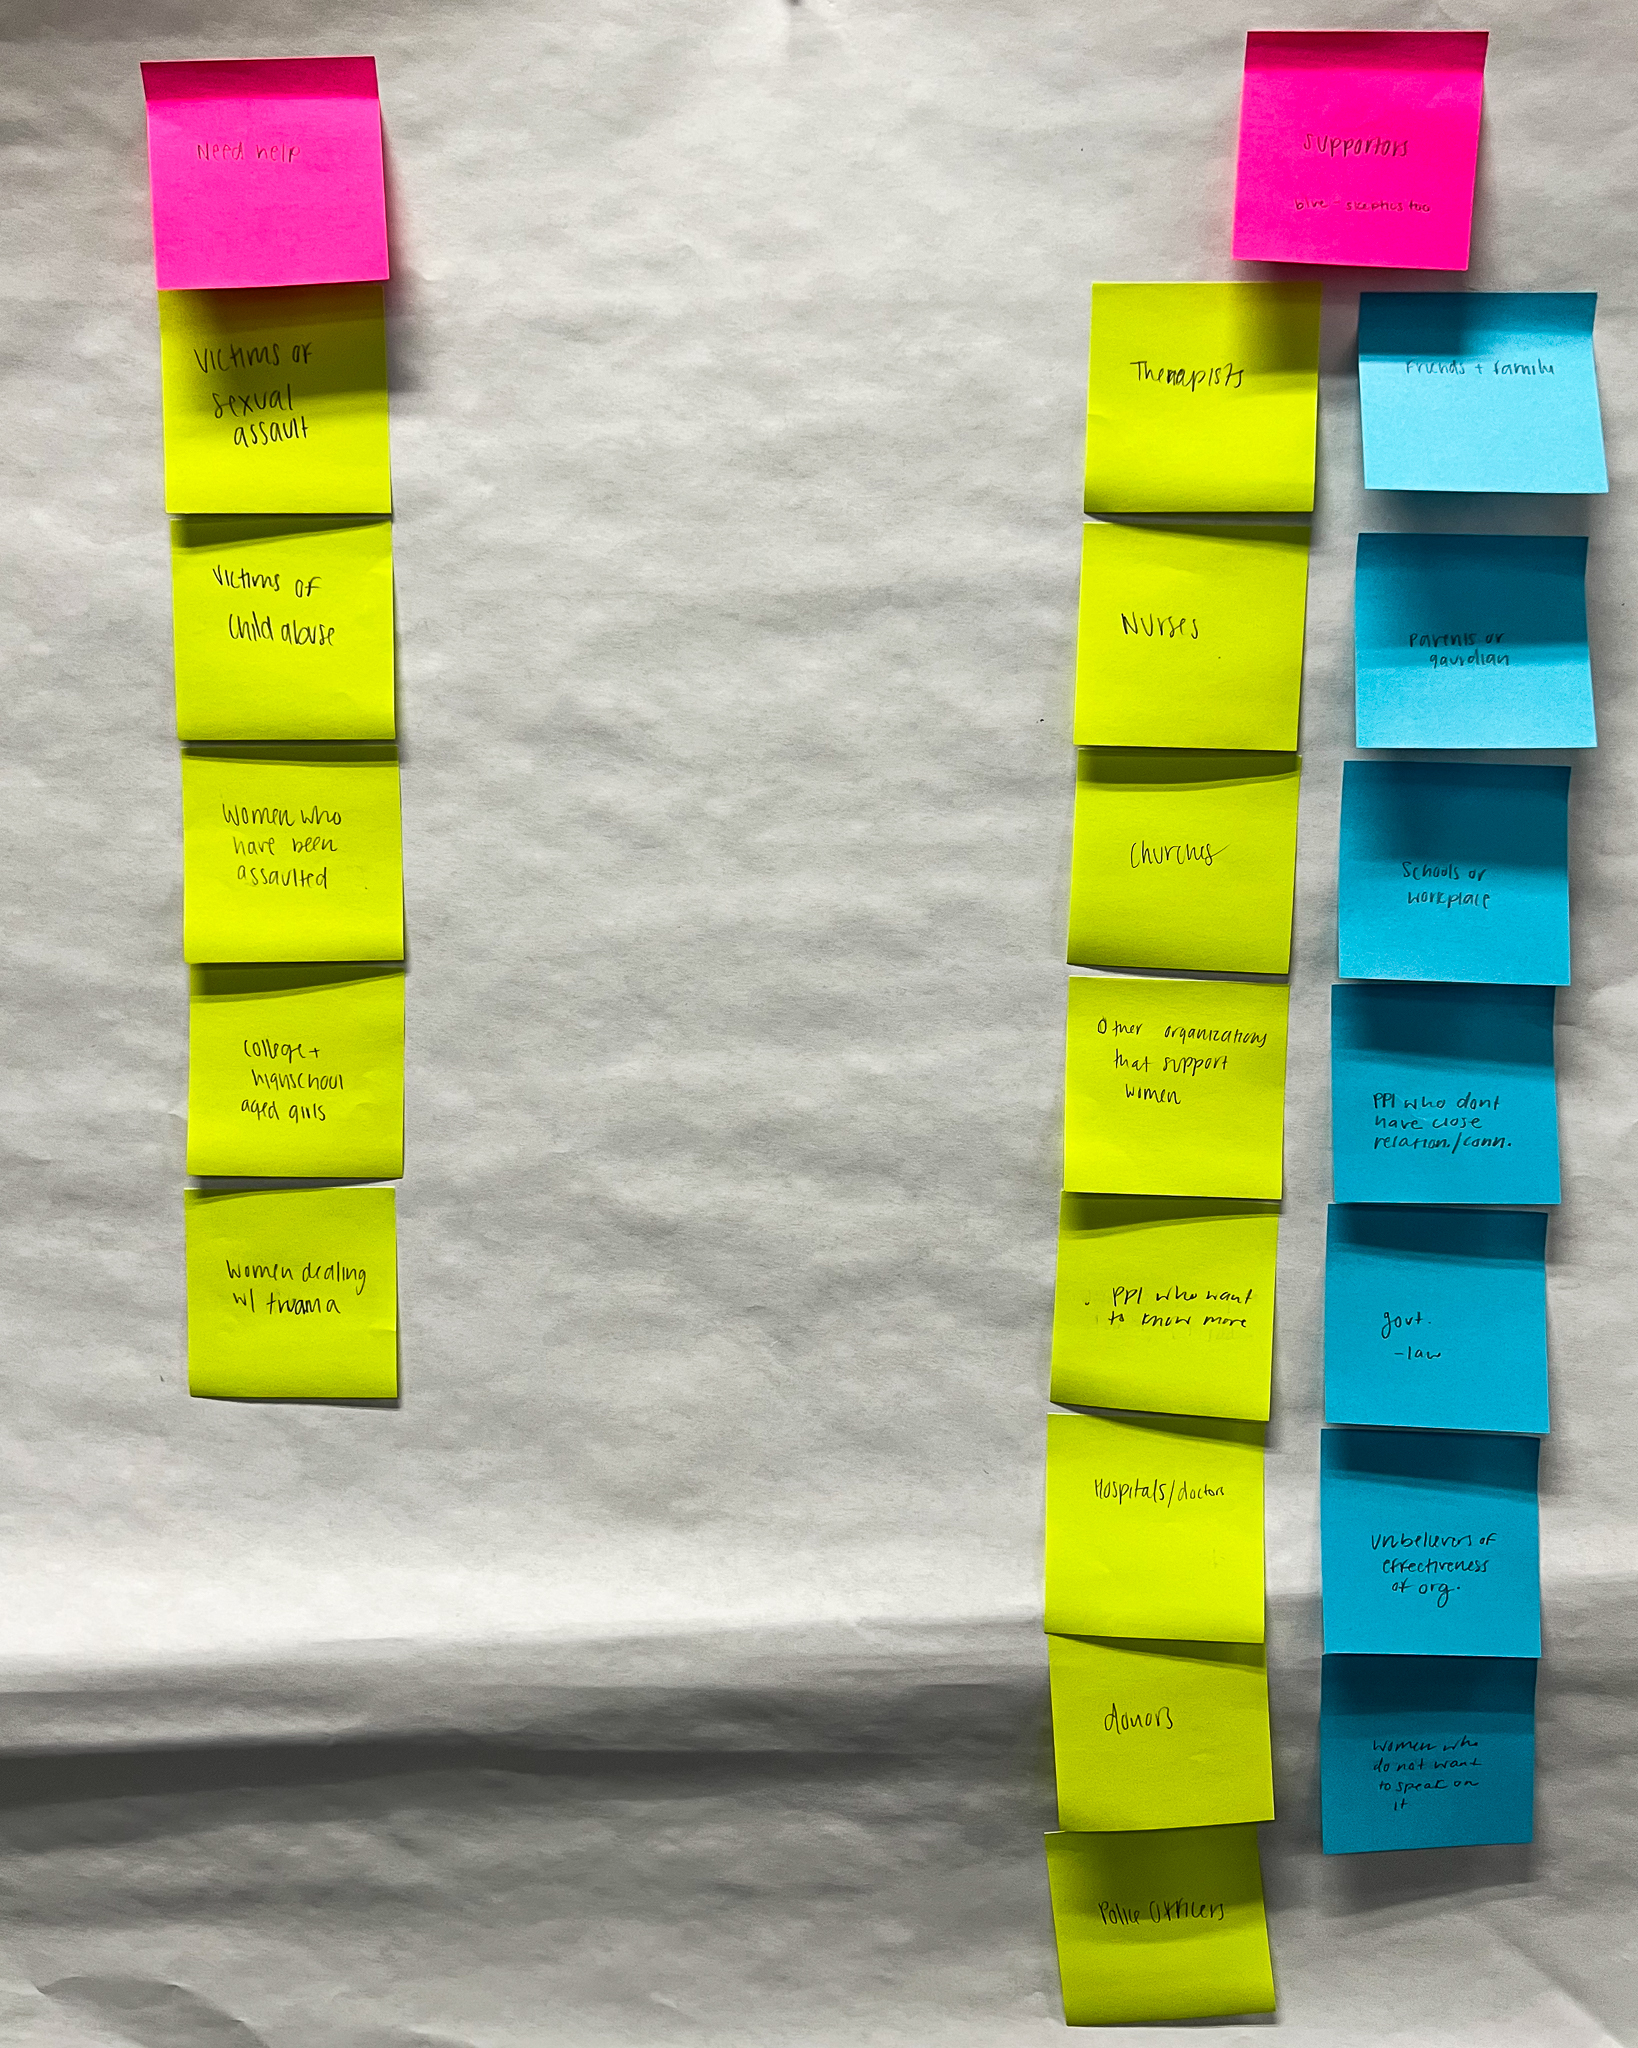 Need help
Victims of
sexual
assault
Victims of
child abuse
Women who
have been
assaulted
College +
highschool
aged girls
Women dealing
w/ truama
Supporters
blue - skeptics too
Therapists
Nurses
Churches
Other organizations
that support
women
PPl who want
to know more
Hospitals/doctors
donors
Police Officers
Friends + family
Parents or
gaurdian
Schools or
workplace
PPl who dont
have close
relation./conn.
govt.
-law
Unbelievers of
effectiveness
of org.
Women who
do not want
to speak on
it